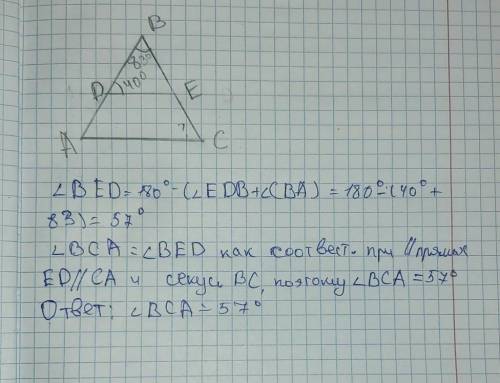 B
83°
40°
D
E
A
?
C
∠BED = 180° - (∠EDB+∠CBA) = 180° - (40° +
83) = 57°
∠BCA = ∠BED как соотвест. при // прямых
ED//CA и секущ. BC, поэтому ∠BCA = 57°
Ответ: ∠BCA = 57°